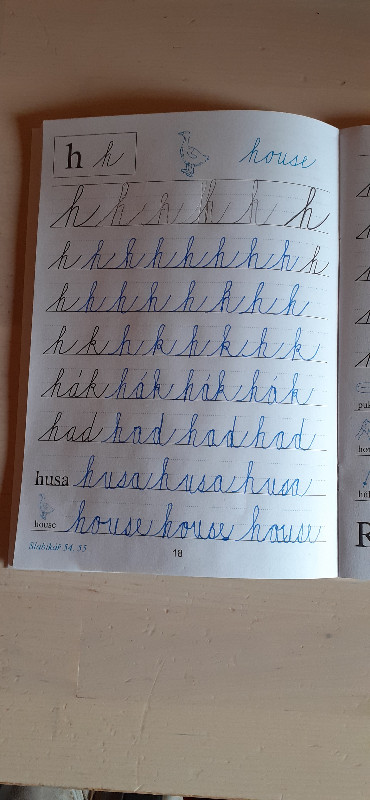 h h house
h h h h h h
h h h h h h h h h
h h h h h h h h
h k h k h k h k
hák hák hák hák
had had had had
husa husa husa husa
house house house house
Slabikář 54, 55
18
R